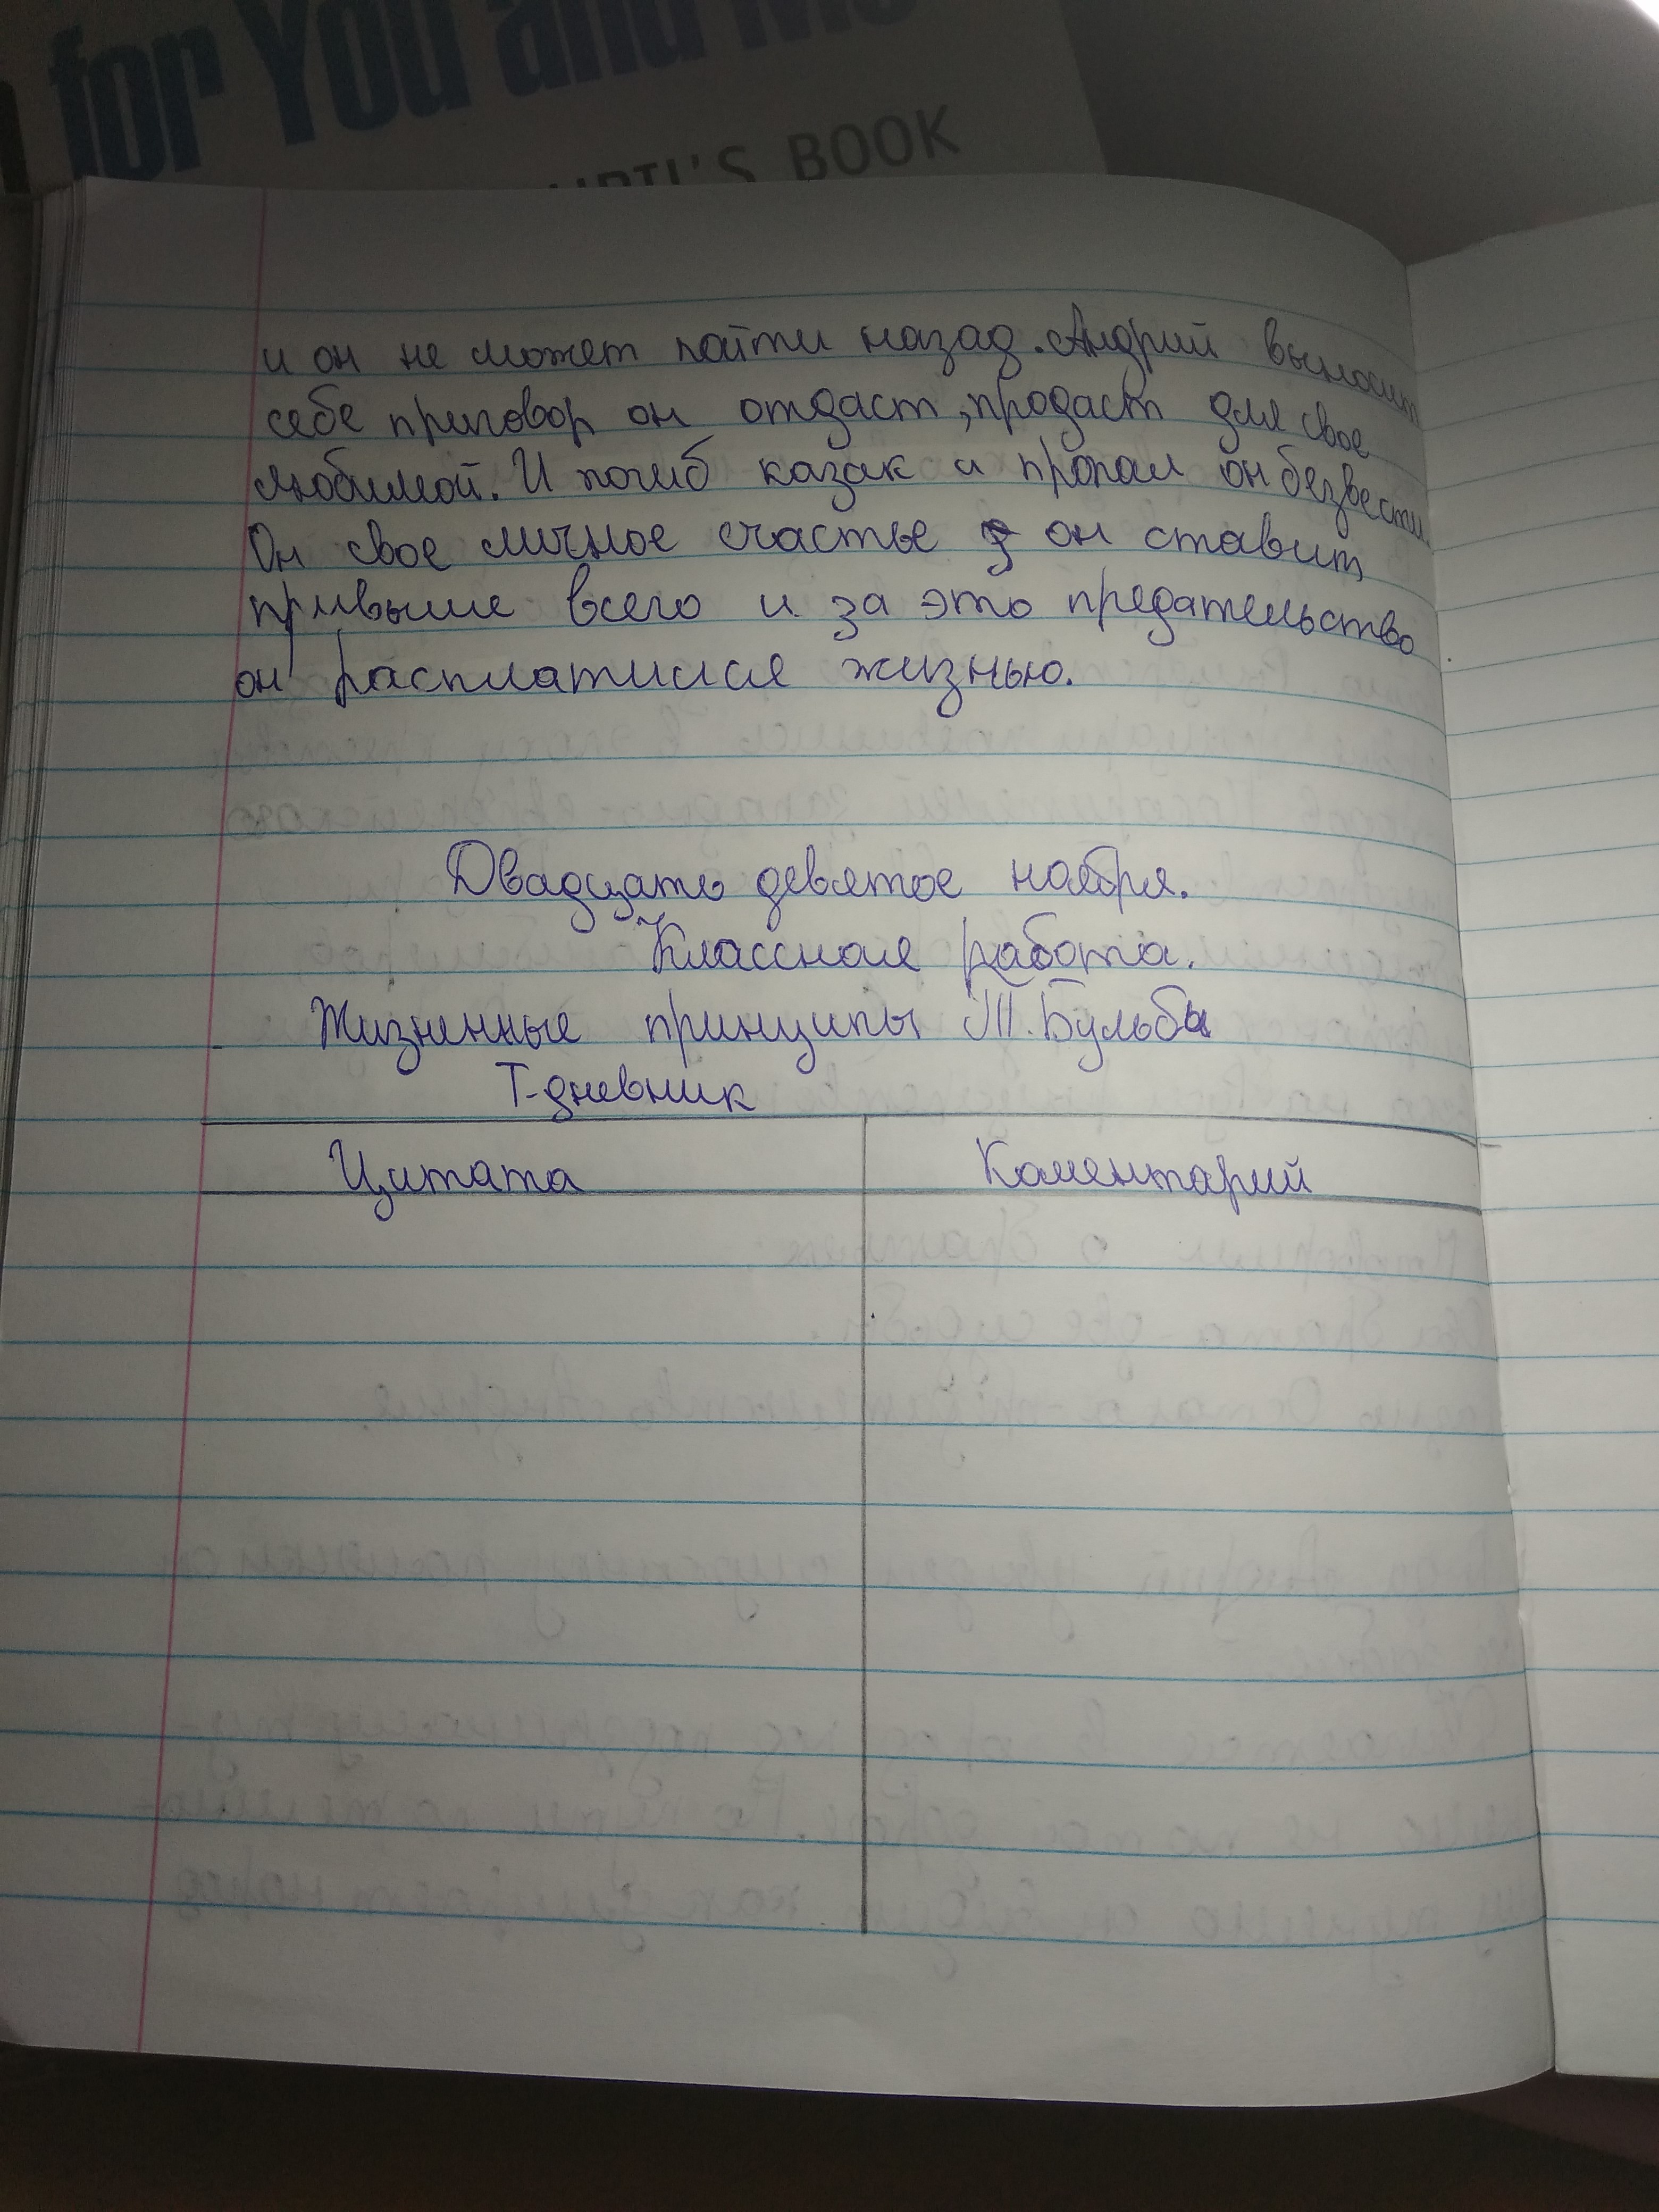 for You and Me
BOOK
и он не может пойти назад. Андрий выносит
себе приговор он отдаст, продаст для свое
любимой. И погиб казак и пропал он безвести.
Он свое личное счастье он ставит
привыше всего и за это предательство
он расплатился жизнью.
Двадцать девятое ноября.
Классная работа.
Жизненные принципы Т. Бульбы
Т-дневник
Цитата Коментарий